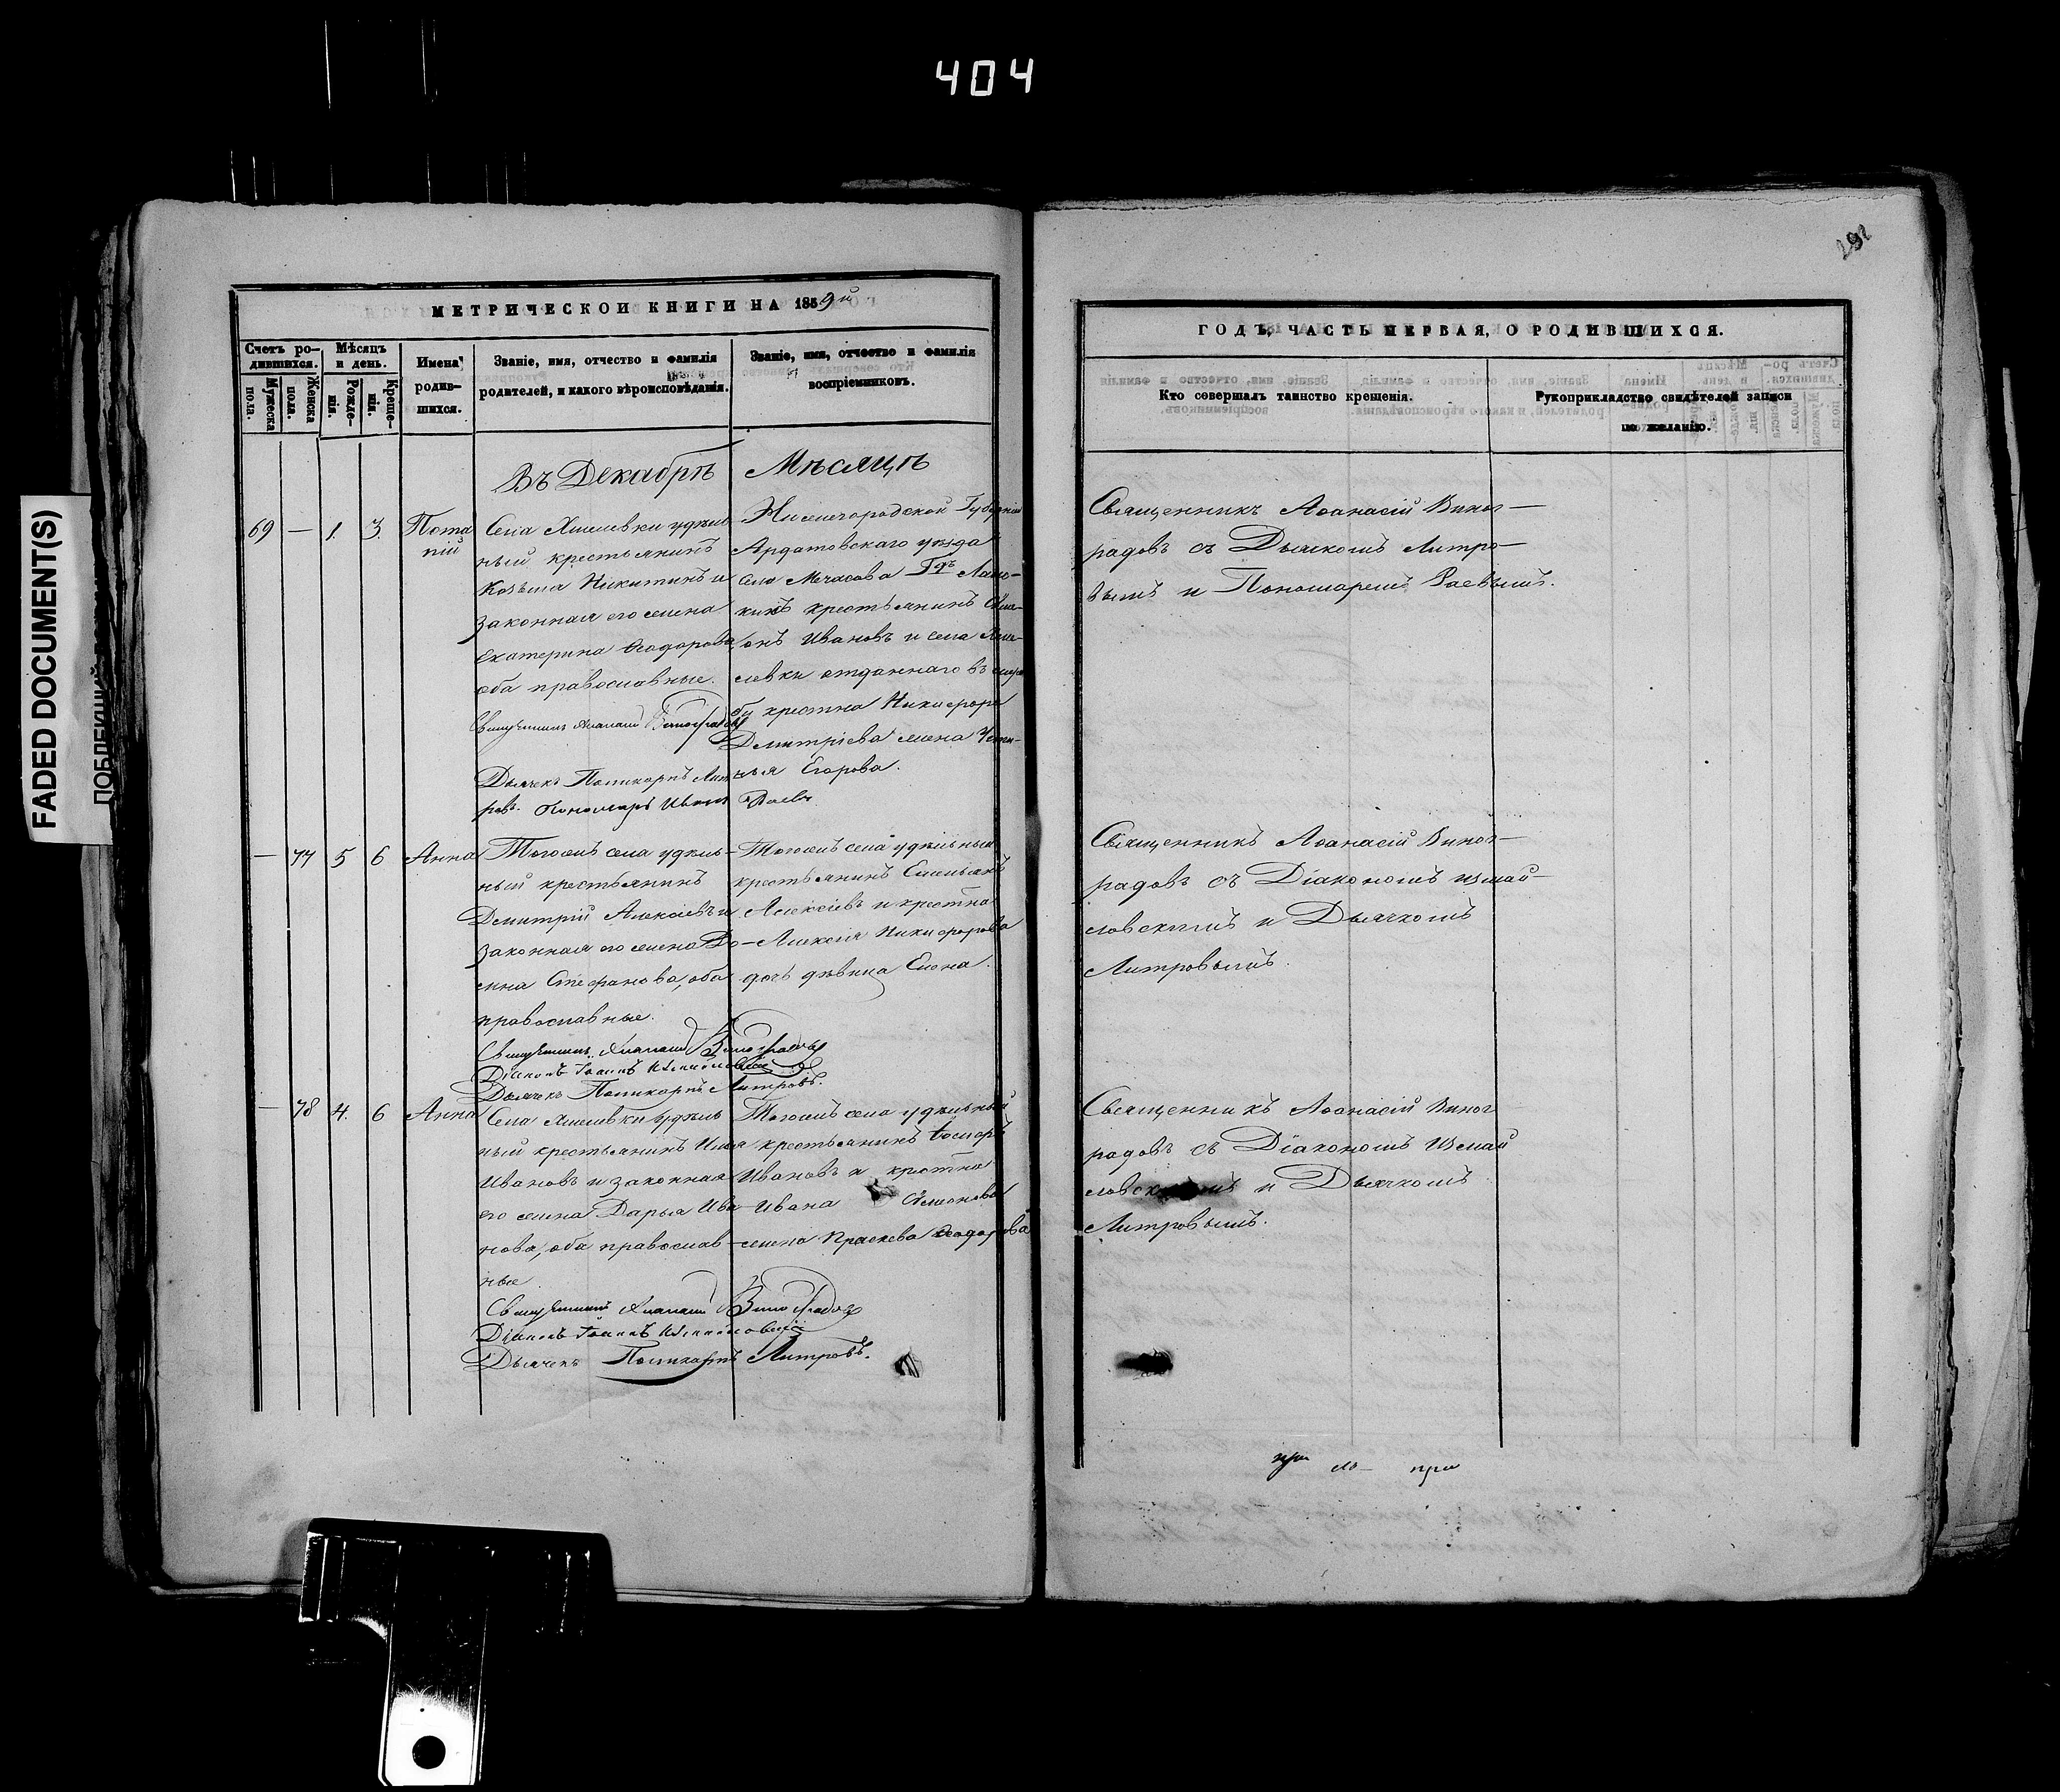 404
FADED DOCUMENT(S)
292
МЕТРИЧЕСКОЙ КНИГИ НА 1859й
Счетъ ро-
дившихся.
Мужеска
пола.
Женска
пола.
Мѣсяцъ
и день.
Рожде-
нія.
Креще-
нія.
Имена
родив-
шихся.
Званіе, имя, отчество и фамилія
родителей, и какого вѣроисповѣданія.
Званіе, имя, отчество и фамилія
воспріемниковъ.
Въ Декабрѣ Мѣсяцѣ
69 — 1. 3. Пота
пій
удѣль
ный крестьянинъ
Козьма Никитинъ и
законная его жена
Екатерина Ѳеодорова,
оба православные.
Священникъ Афанасій Виноградовъ
Дьячекъ Поликарпъ
Пономарь Иванъ Раевъ
Нижегородской Губерніи
Ардатовскаго уѣзда
села
крестьянинъ
Ивановъ и села
отданнаго въ
крестна Никифора
Дмитріева жена Усти-
нья Егорова.
— 77 5 6 Анна
Тогожъ села удѣль-
ный крестьянинъ
Дмитрій Алексіевъ и
законная его жена До-
мна Стефанова, оба
православные.
Священникъ Афанасій Виноградовъ
Діаконъ Іоаннъ Измайловскій
Дьячекъ Поликарпъ Литровъ.
Тогожъ села удѣльный
крестьянинъ Емельянъ
Алексіевъ и крестна
Алексія Никифорова
дочь дѣвица Елена.
— 78 4. 6 Анна
удѣль
ный крестьянинъ Илья
Ивановъ и законная
его жена Дарья Ива-
нова, оба православ-
ные.
Священникъ Афанасій Виноградовъ
Діаконъ Іоаннъ Измайловскій
Дьячекъ Поликарпъ Литровъ.
Тогожъ села удѣльный
крестьянинъ
Ивановъ и крестна
Ивана
жена Праскева Ѳеодорова
ГОДЪ, ЧАСТЬ ПЕРВАЯ, О РОДИВШИХСЯ.
Кто совершалъ таинство крещенія.
Рукоприкладство свидѣтелей записи
по желанію.
Священникъ Аѳанасій Виног—
радовъ съ Дьячкомъ Литро—
вымъ и Пономаремъ Раевымъ.
Священникъ Аѳанасій Виног—
радовъ съ Діакономъ Измай—
ловскимъ и Дьячкомъ
Литровымъ.
Священникъ Аѳанасій Виног
радовъ съ Діакономъ Измай
ловскимъ и Дьячкомъ
Литровымъ.
при
при